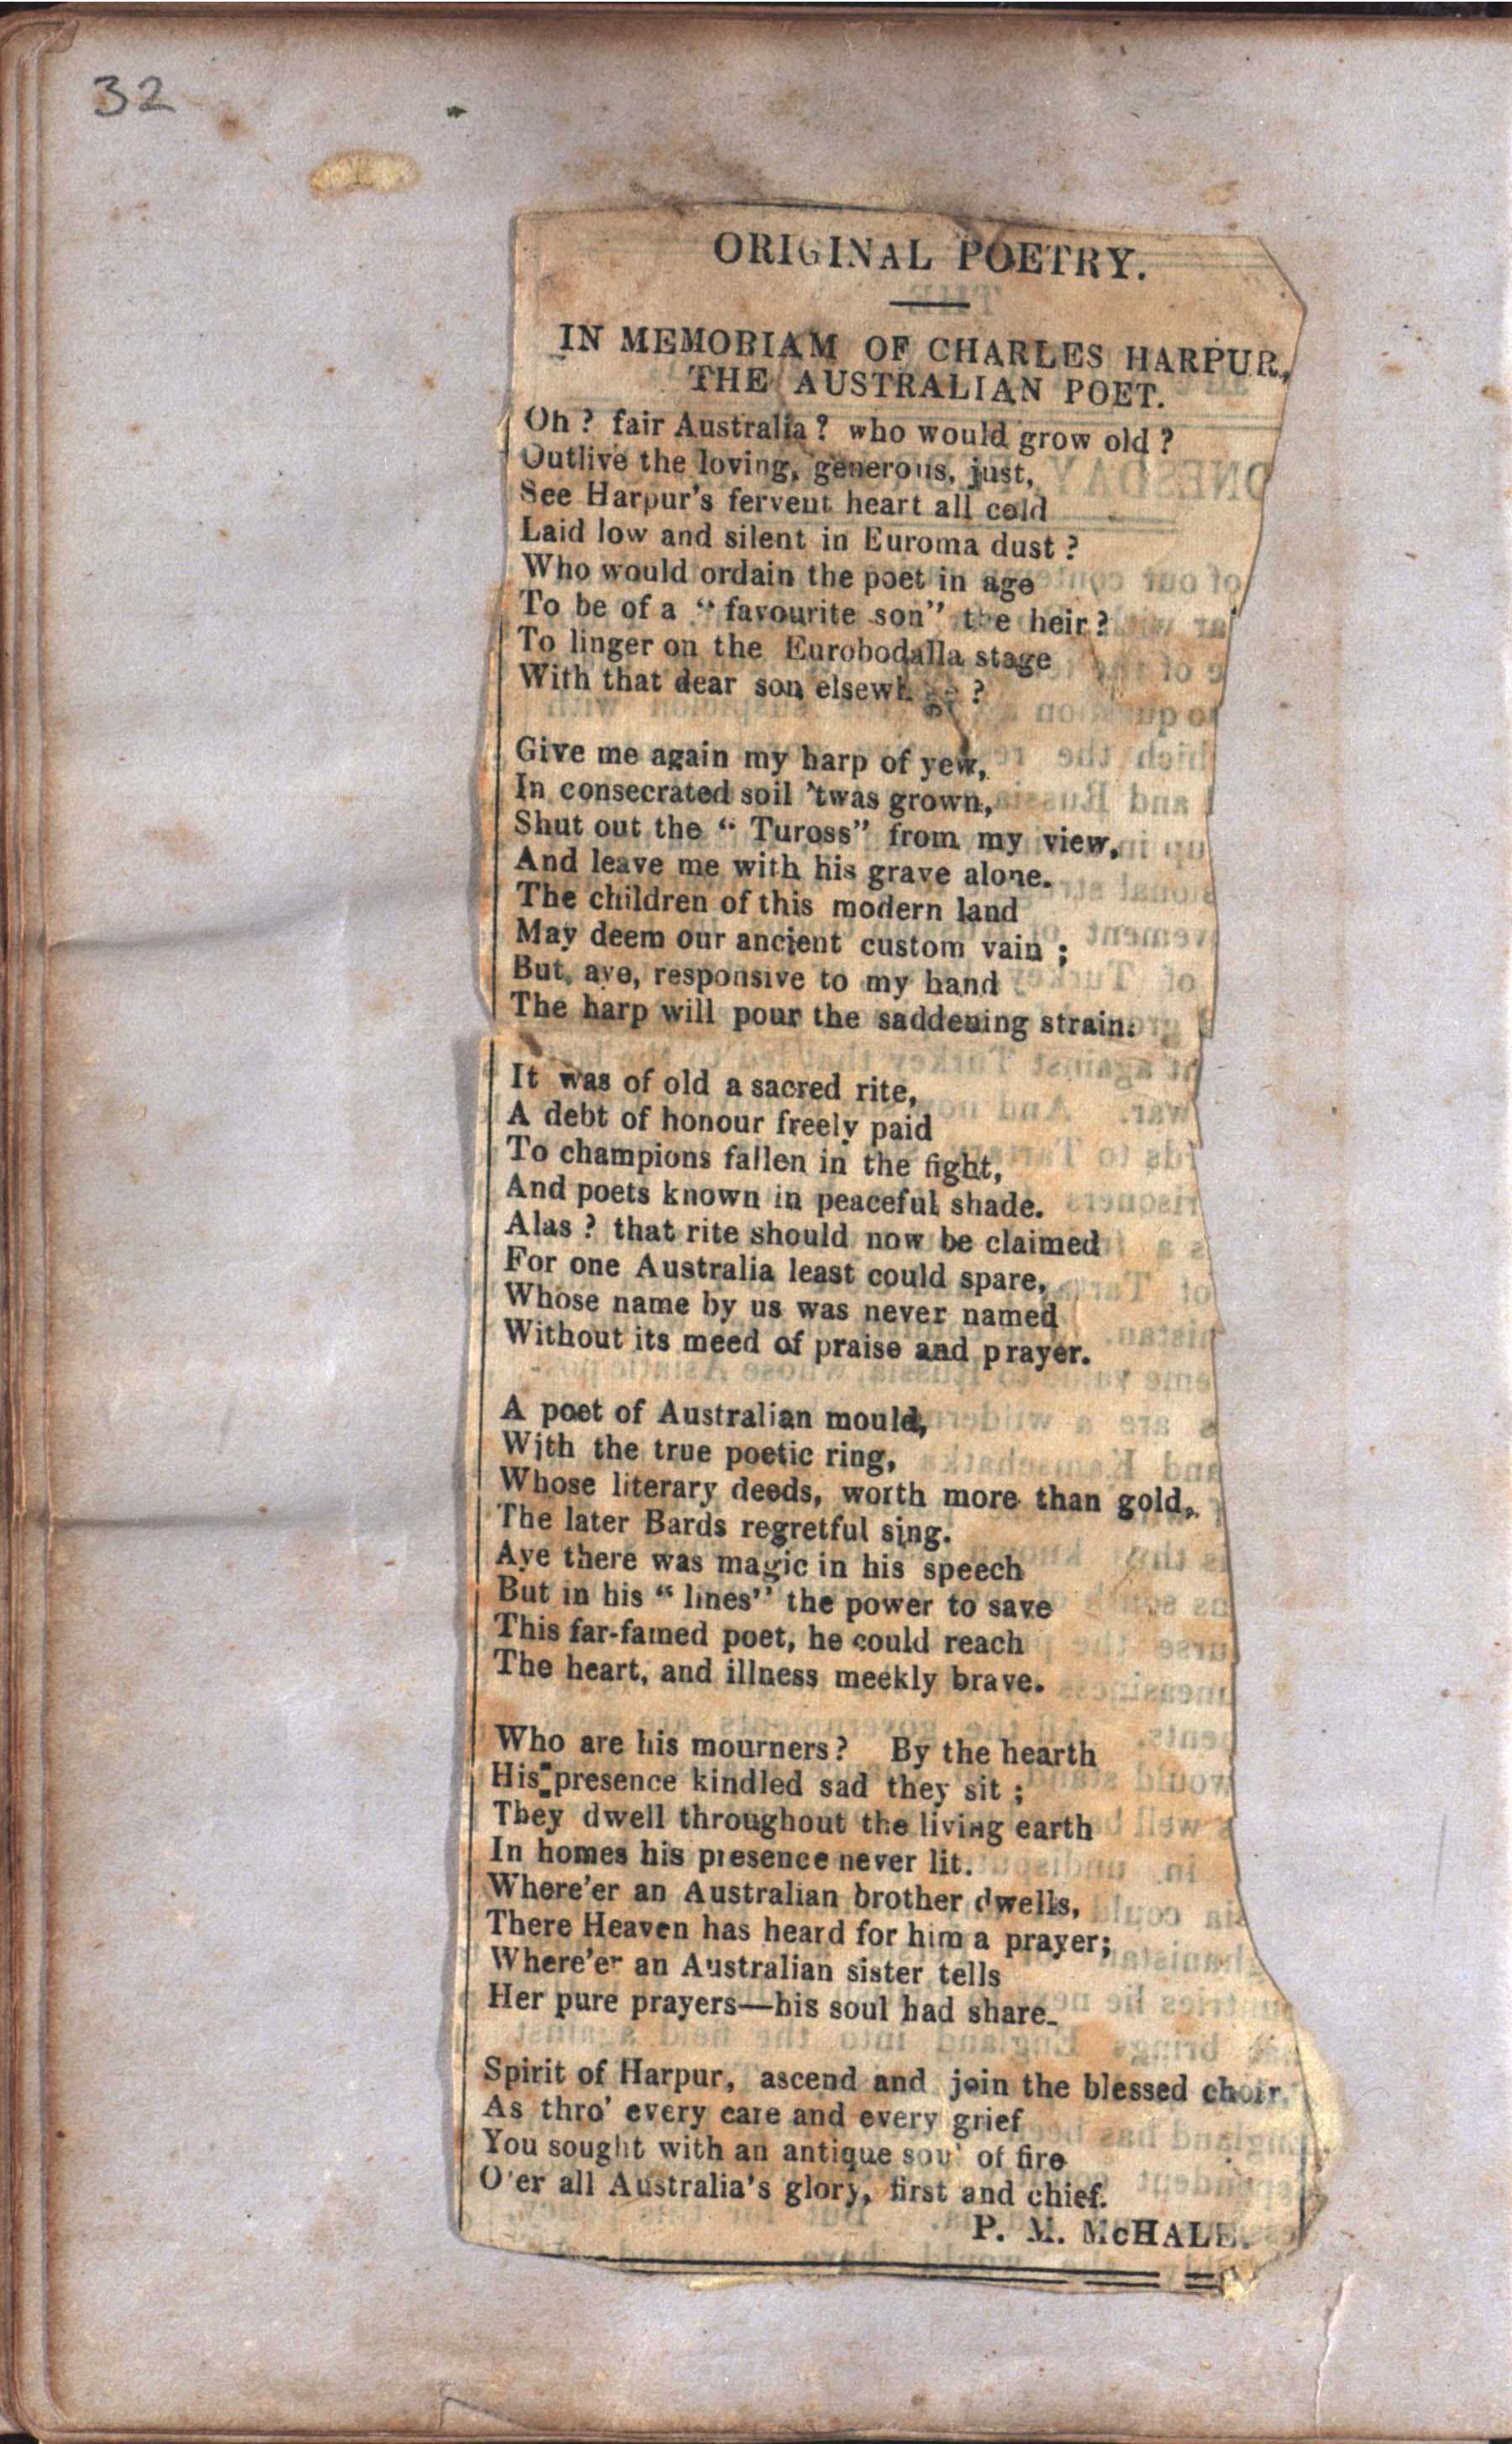 32
ORIGINAL POETRY.
IN MEMORIAM OF CHARLES HARPUR,
THE AUSTRALIAN POET.
Oh ? fair Australia ? who would grow old ?
Outlive the loving, generous, just,
See Harpur's fervent heart all cold
Laid low and silent in Euroma dust ?
Who would ordain the poet in age
To be of a " favourite son" the heir ?
To linger on the Eurobodalla stage
With that dear son ?
Give me again my harp of yew,
In consecrated soil 'twas grown,
Shut out the " Tuross" from my view,
And leave me with his grave alone.
The children of this modern land
May deem our ancient custom vain ;
But, aye, responsive to my hand
The harp will pour the saddening strain.
It was of old a sacred rite,
A debt of honour freely paid
To champions fallen in the fight,
And poets known in peaceful shade.
Alas ? that rite should now be claimed
For one Australia least could spare,
Whose name by us was never named
Without its meed of praise and prayer.
A poet of Australian mould,
With the true poetic ring,
Whose literary deeds, worth more than gold,
The later Bards regretful sing.
Aye there was magic in his speech
But in his " lines" the power to save
This far-famed poet, he could reach
The heart, and illness meekly brave.
Who are his mourners? By the hearth
His presence kindled sad they sit ;
They dwell throughout the living earth
In homes his presence never lit.
Where'er an Australian brother dwells,
There Heaven has heard for him a prayer;
Where'er an Australian sister tells
Her pure prayers—his soul had share.
Spirit of Harpur, ascend and join the blessed choir.
As thro' every care and every grief
You sought with an antique soul of fire
O'er all Australia's glory, first and chief.
P. M. McHALE.